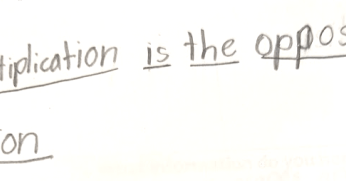 tiplication is the oppos
on